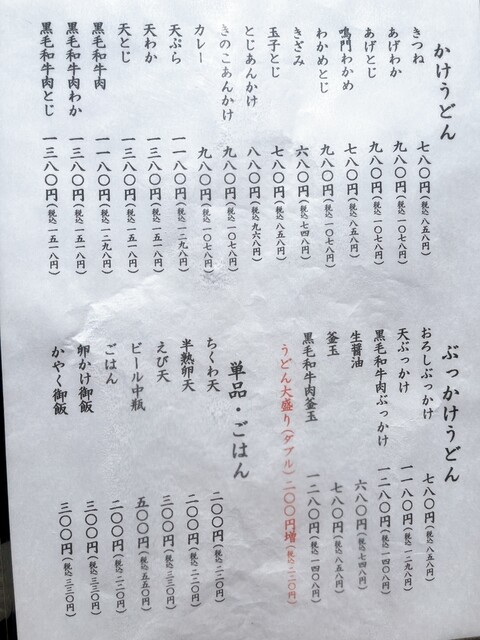 かけうどん
きつね 七八〇円(税込 八五八円)
あげわか 九八〇円(税込 一〇七八円)
あげとじ 九八〇円(税込 一〇七八円)
鳴門わかめ 七八〇円(税込 八五八円)
わかめとじ 九八〇円(税込 一〇七八円)
きざみ 六八〇円(税込 七四八円)
玉子とじ 七八〇円(税込 八五八円)
とじあんかけ 八八〇円(税込 九六八円)
きのこあんかけ 九八〇円(税込 一〇七八円)
カレー 九八〇円(税込 一〇七八円)
天ぷら 一一八〇円(税込 一二九八円)
天わか 一三八〇円(税込 一五一八円)
天とじ 一三八〇円(税込 一五一八円)
黒毛和牛肉 一一八〇円(税込 一二九八円)
黒毛和牛肉わか 一三八〇円(税込 一五一八円)
黒毛和牛肉とじ 一三八〇円(税込 一五一八円)
ぶっかけうどん
おろしぶっかけ 七八〇円(税込 八五八円)
天ぶっかけ 一一八〇円(税込 一二九八円)
黒毛和牛肉ぶっかけ 一二八〇円(税込 一四〇八円)
生醤油 六八〇円(税込 七四八円)
釜玉 七八〇円(税込 八五八円)
黒毛和牛肉釜玉 一二八〇円(税込 一四〇八円)
うどん大盛り(ダブル)二〇〇円増(税込 二二〇円)
単品・ごはん
ちくわ天 二〇〇円(税込 二二〇円)
半熟卵天 二〇〇円(税込 二二〇円)
えび天 三〇〇円(税込 三三〇円)
ビール中瓶 五〇〇円(税込 五五〇円)
ごはん 二〇〇円(税込 二二〇円)
卵かけ御飯 三〇〇円(税込 三三〇円)
かやく御飯 三〇〇円(税込 三三〇円)